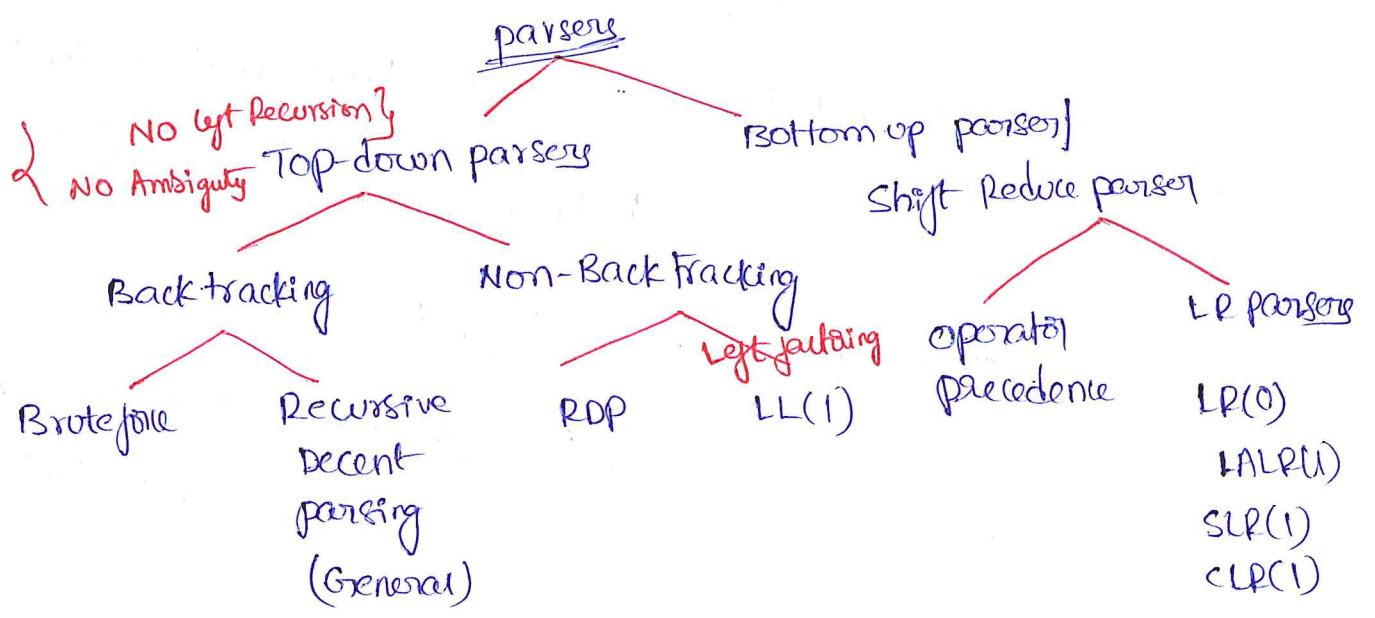 parsers
NO left Recursion}
{ NO Ambiguty
Top-down parsers
Bottom up parser/
Shift Reduce parser
Backtracking
Non-Back Tracking
Left factoring
operator
precedence
LR parsers
Bruteforce
Recursive
Decent
parsing
(General)
RDP
LL(1)
LR(0)
LALR(1)
SLR(1)
CLR(1)